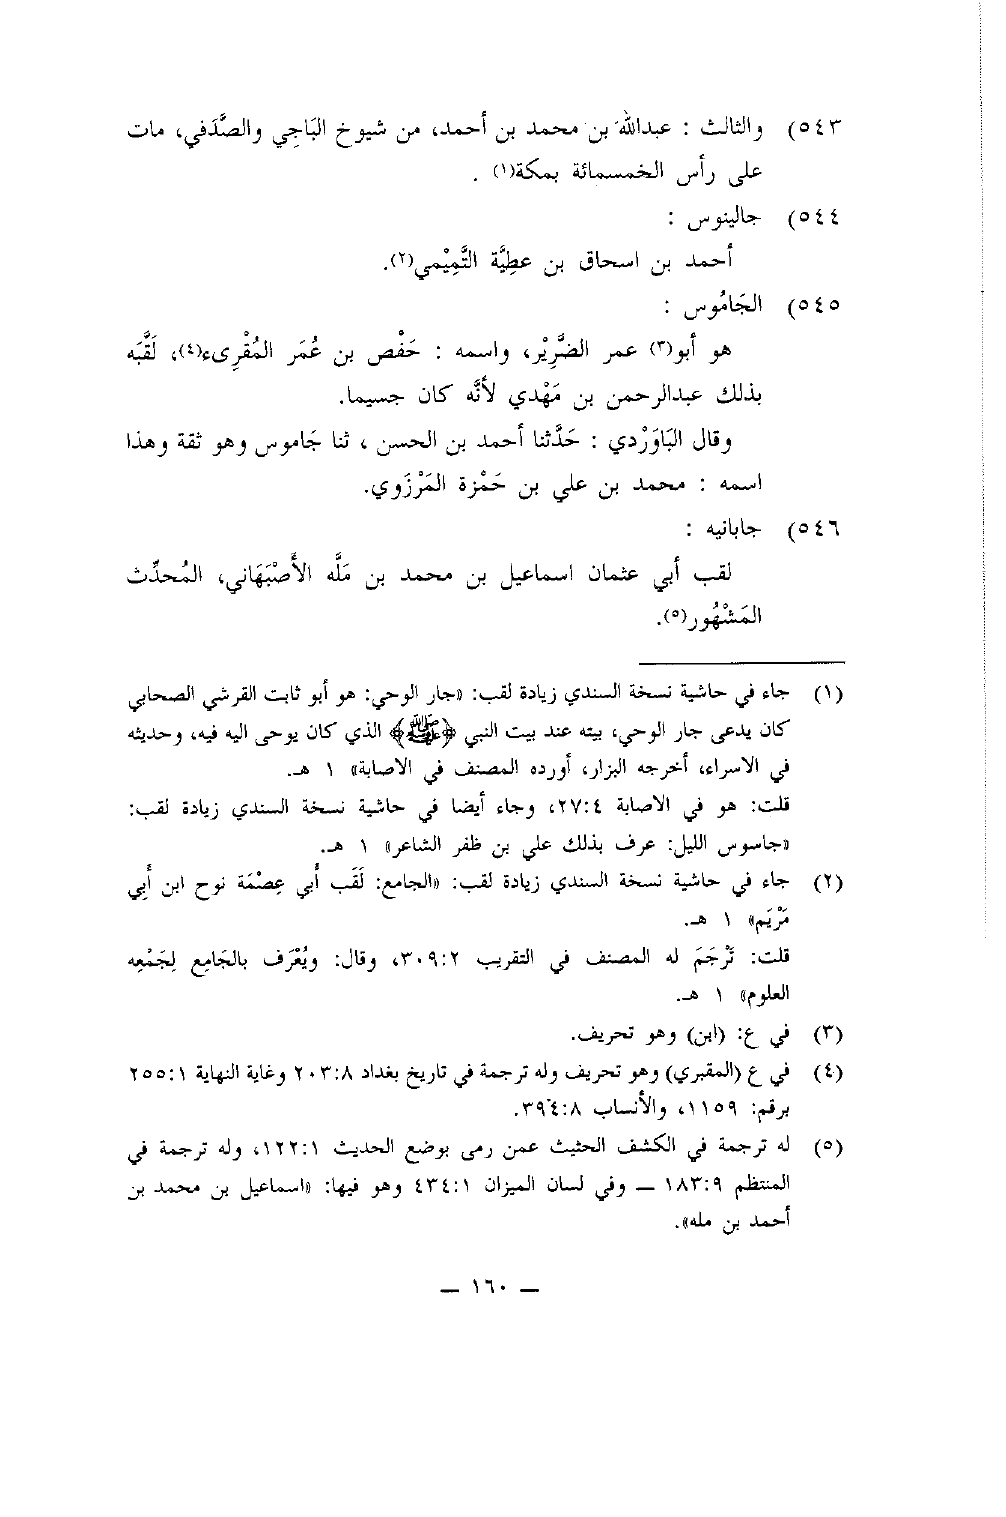 ٥٤٣) والثالث : عبدالله بن محمد بن أحمد، من شيوخ البَاجِي والصَّدَفي، مات
على رأس الخمسمائة بمكة(١) .
٥٤٤) جالينوس :
أحمد بن اسحاق بن عطِيَّة التَّمِيْمي(٢).
٥٤٥) الجَامُوس :
هو أبو(٣) عمر الضَّرِيْر، واسمه : حَفْص بن عُمَر المُقْرِىء(٤)، لَقَّبَه
بذلك عبدالرحمن بن مَهْدي لأنَّه كان جسيما.
وقال البَاوَرْدي : حَدَّثنا أحمد بن الحسن ، ثنا جَاموس وهو ثقة وهذا
اسمه : محمد بن علي بن حَمْزة المَرْزَوي.
٥٤٦) جابانيه :
لقب أبي عثمان اسماعيل بن محمد بن مَلَّه الأَصْبَهَاني، المُحدِّث
المَشْهُور(٥).
(١) جاء في حاشية نسخة السندي زيادة لقب: «جار الوحي: هو أبو ثابت القرشي الصحابي
كان يدعى جار الوحي، بيته عند بيت النبي ﴿ﷺ﴾ الذي كان يوحى اليه فيه، وحديثه
في الاسراء، أخرجه البزار، أورده المصنف في الاصابة» ١ هـ.
قلت: هو في الاصابة ٢٧:٤، وجاء أيضا في حاشية نسخة السندي زيادة لقب:
«جاسوس الليل: عرف بذلك علي بن ظفر الشاعر» ١ هـ.
(٢) جاء في حاشية نسخة السندي زيادة لقب: «الجامع: لَقَب أبي عِصْمَة نوح ابن أَبِي
مَرْيَم» ١ هـ.
قلت: تَرْجَمَ له المصنف في التقريب ٣٠٩:٢، وقال: ويُعْرَف بالجَامِع لِجَمْعِه
العلوم» ١ هـ.
(٣) في ع: (ابن) وهو تحريف.
(٤) في ع (المقبري) وهو تحريف وله ترجمة في تاريخ بغداد ٢٠٣:٨ وغاية النهاية ٢٥٥:١
برقم: ١١٥٩، والأنساب ٣٩٤:٨.
(٥) له ترجمة في الكشف الحثيث عمن رمى بوضع الحديث ١٢٢:١، وله ترجمة في
المنتظم ١٨٣:٩ — وفي لسان الميزان ٤٣٤:١ وهو فيها: «اسماعيل بن محمد بن
أحمد بن مله».
— ١٦٠ —